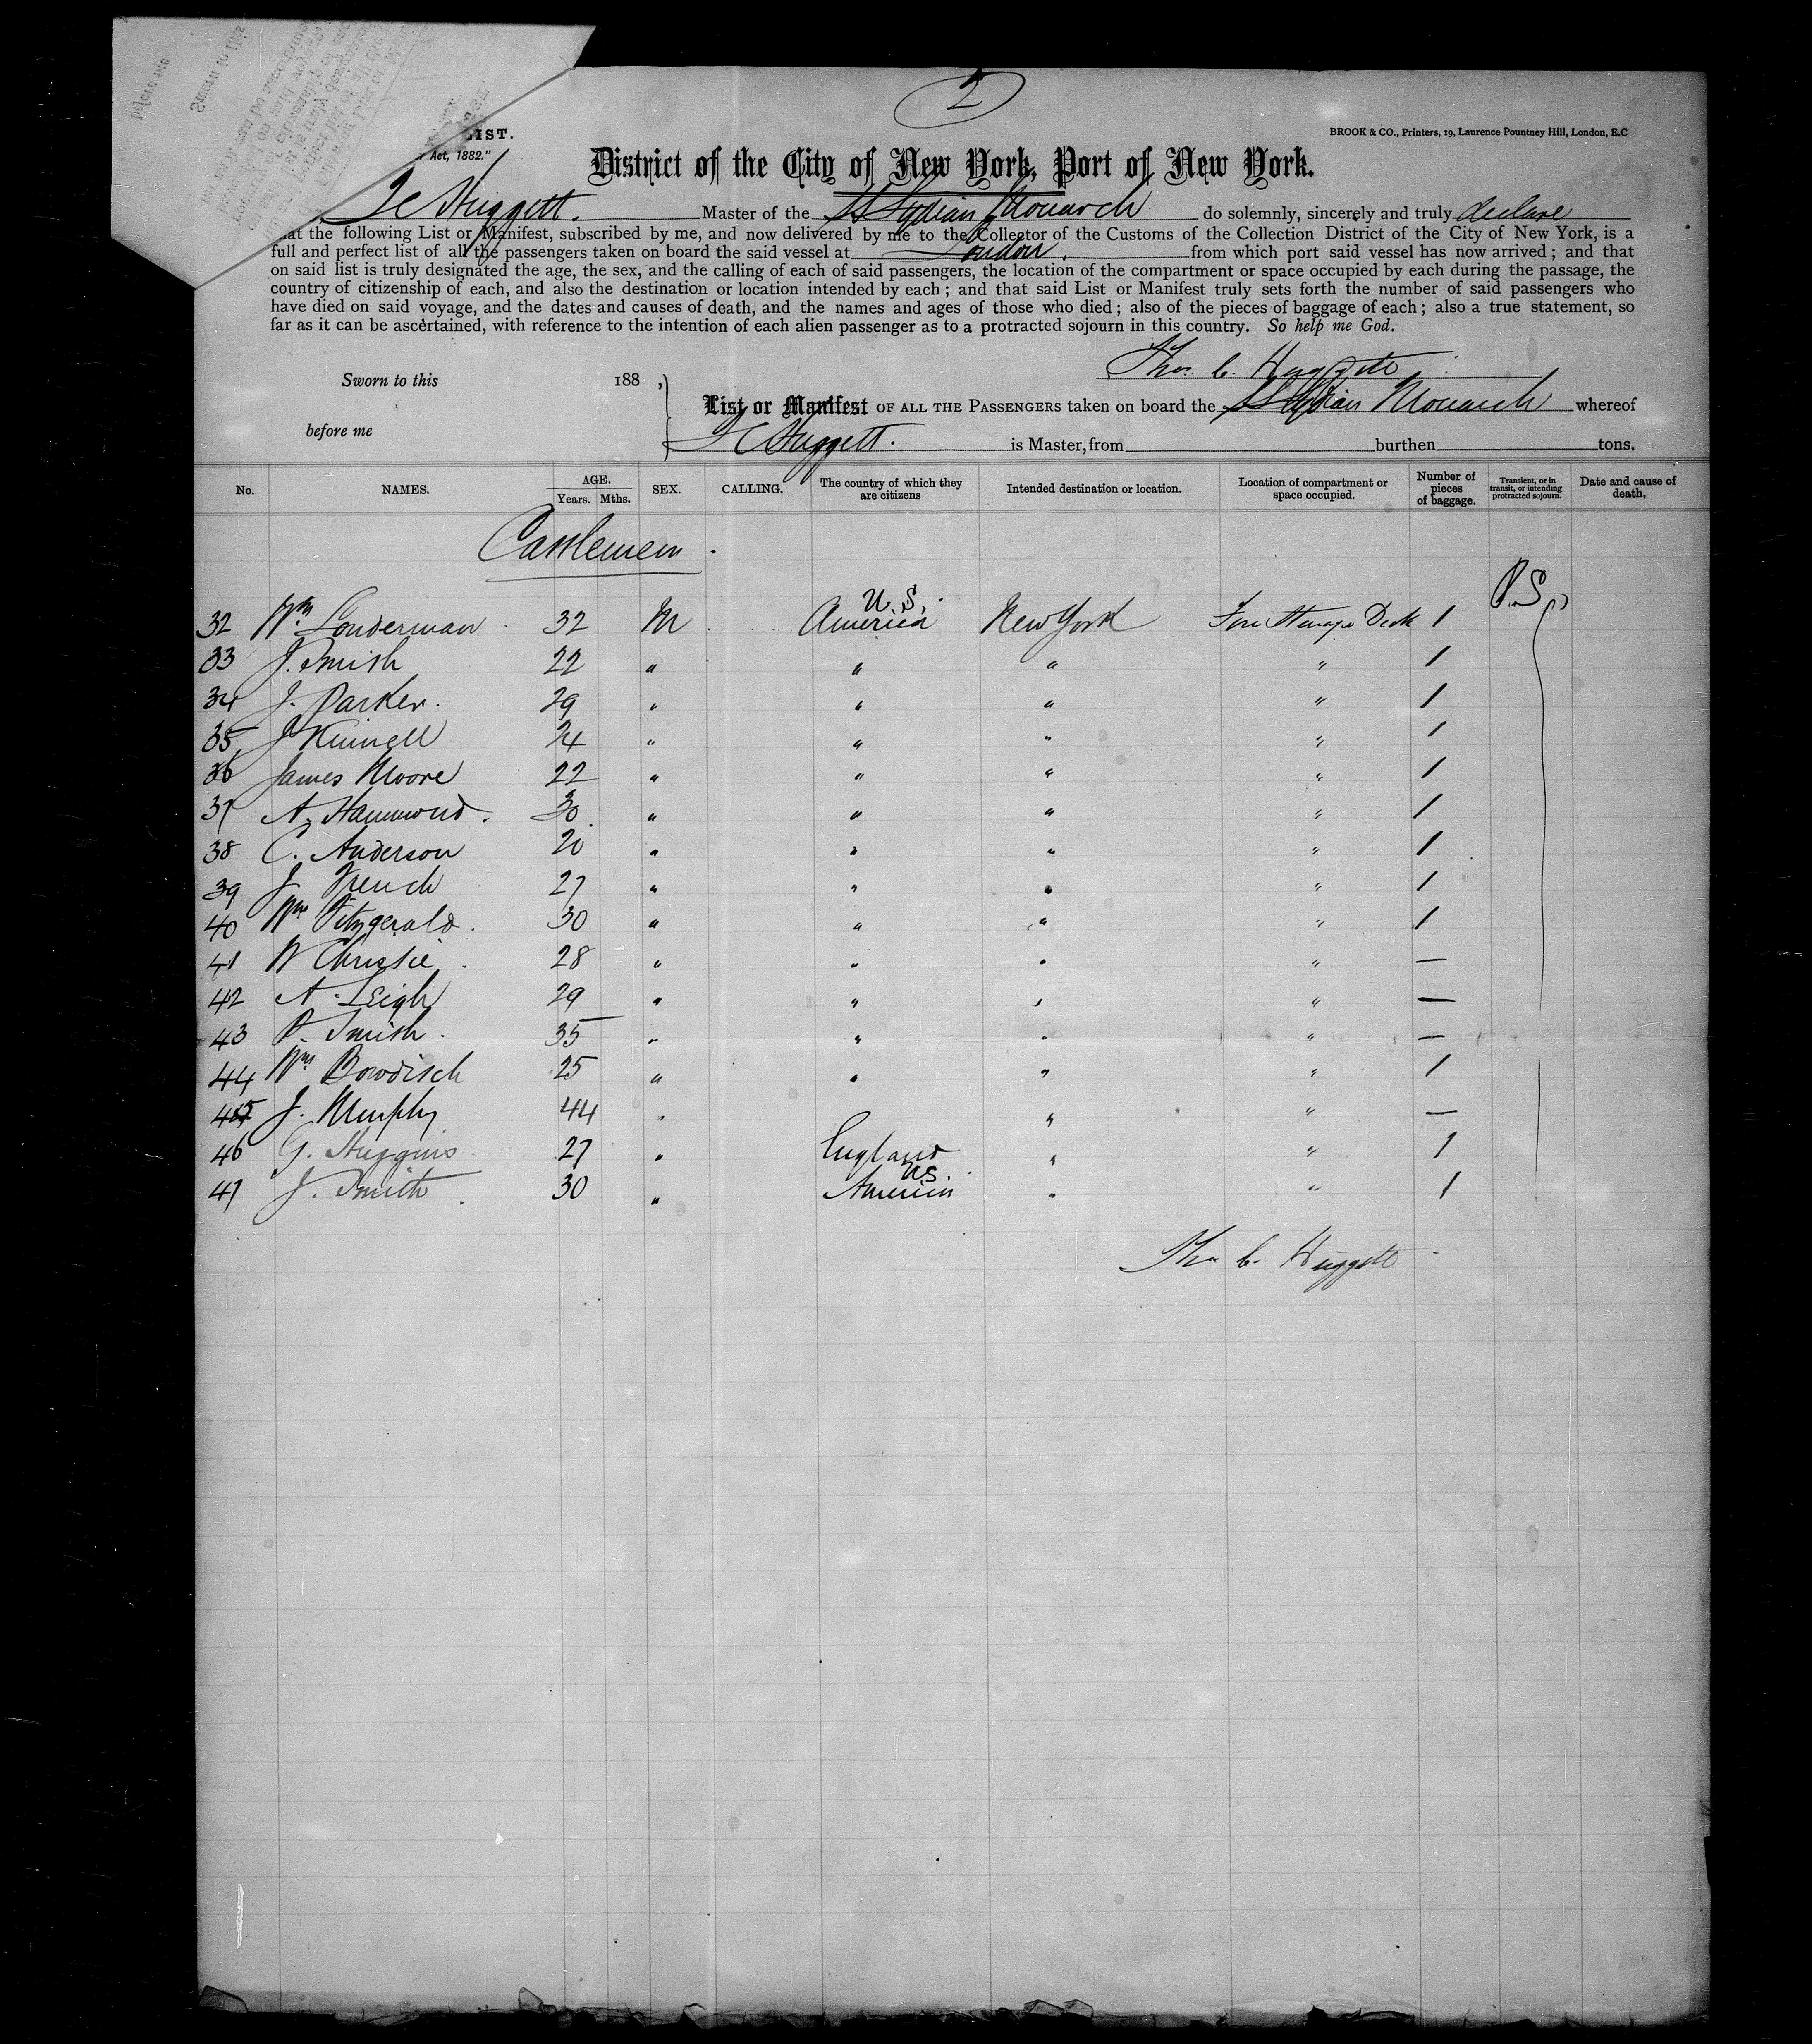 2
LIST.
Act, 1882."
BROOK & CO., Printers, 19, Laurence Pountney Hill, London, E.C
District of the City of New York, Port of New York.
T C Huggett. Master of the SS Lydian Monarch do solemnly, sincerely and truly declare
at the following List or Manifest, subscribed by me, and now delivered by me to the Collector of the Customs of the Collection District of the City of New York, is a
full and perfect list of all the passengers taken on board the said vessel at London. from which port said vessel has now arrived; and that
on said list is truly designated the age, the sex, and the calling of each of said passengers, the location of the compartment or space occupied by each during the passage, the
country of citizenship of each, and also the destination or location intended by each; and that said List or Manifest truly sets forth the number of said passengers who
have died on said voyage, and the dates and causes of death, and the names and ages of those who died; also of the pieces of baggage of each; also a true statement, so
far as it can be ascertained, with reference to the intention of each alien passenger as to a protracted sojourn in this country. So help me God.
Thos C. Huggett
Sworn to this 188 ,
List or Manifest OF ALL THE PASSENGERS taken on board the SS Lydian Monarch whereof
before me
T C Huggett. is Master, from burthen tons.
No. NAMES. AGE. Years. Mths. SEX. CALLING. The country of which they are citizens Intended destination or location. Location of compartment or space occupied. Number of pieces of baggage. Transient, or in transit, or intending protracted sojourn. Date and cause of death.
Cattlemen.
32 Wm Londerman 32 M U.S. America New York Fore Steerage Deck 1 P.S.
33 J. Smith 22 " " " " 1
34 J. Parker. 29 " " " " 1
35 J Kinnell 24 " " " " 1
36 James Moore 22 " " " " 1
37 A. Hammond. 30 " " " " 1
38 C. Anderson 20 " " " " 1
39 J French 27 " " " " 1
40 Wm Fitzgerald. 30 " " " " 1
41 W Christie 28 " " " " —
42 A. Leigh 29 " " " " —
43 P. Smith. 35 " " " " —
44 Wm Bowdisch 25 " " " " 1
45 J. Murphy 44 " " " —
46 G. Huggins 27 " England " " 1
47 J. Smith 30 " U.S. America " " 1
Thos C. Huggett